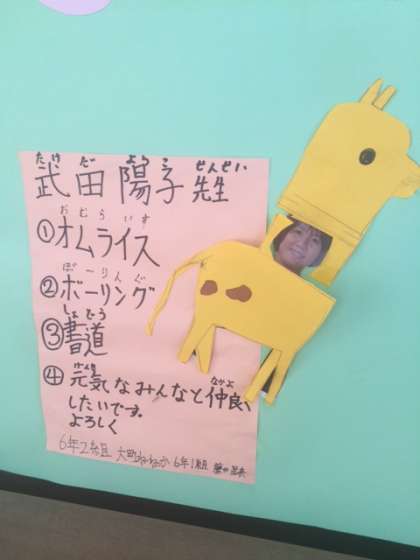 たけ だ よう こ せんせい
武田陽子先生
おむらいす
①オムライス
ぼーりんぐ
②ボーリング
しょどう
③書道
げんき なかよ
④元気なみんなと仲良く
したいです。
よろしく
6年2組 大町 6年1組